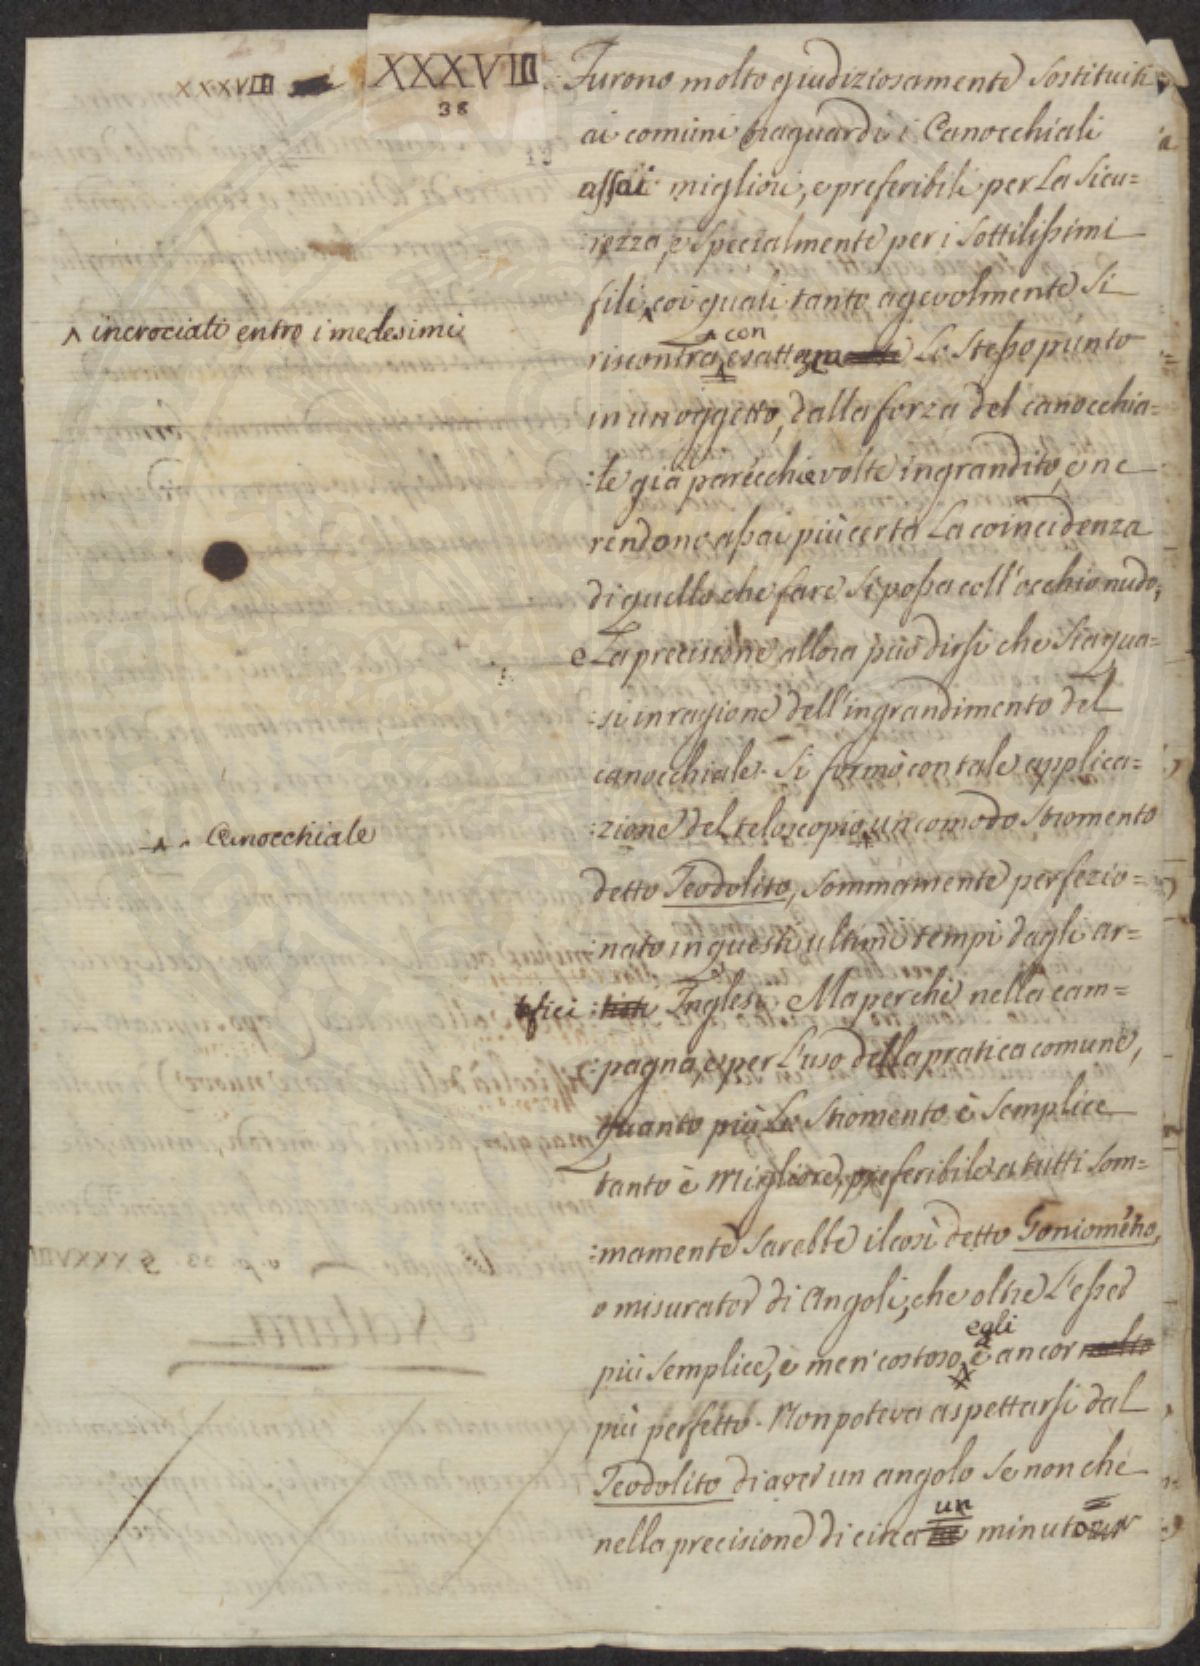 XXXVIII
XXXVIII
38
Furono molto giudiziosamente sostituiti
ai comuni traguardi i Canocchiali
assai migliori, e preferibili per la sicu=
:rezza, e specialmente per i sottilissimi
fili ^ coi quali tanto agevolmente si
^ incrociati entro i medesimi
^ con
riscontra, esatta Lo stesso punto
in un oggetto, dalla forza del canocchia=
:le già parecchie volte ingrandito, e ne
rendono assai più certa la coincidenza
di quello che fare si possa coll'occhio nudo,
e La precisione allora può dirsi che sia qua=
:si in ragione dell'ingrandimento del
canocchiale. Si formò con tale applica=
:zione del teloscopio, un comodo stromento
^ Canocchiale
detto Teodolito, sommamente perfezio=
:nato in questi ultimi tempi dagli ar=
tefici Inglesi. Ma perchè nella cam=
:pagna, e per l'uso della pratica comune,
quanto più Lo stromento è semplice
tanto è migliore, preferibile a tutti som=
:mamente sarebbe il così detto Goniometro,
o misurator di Angoli, che oltre l'esser
egli
più semplice, è men costoso, è ancor molto
più perfetto. Non poteva aspettarsi dal
Teodolito di aver un angolo se non che
un
nella precisione di circa minuto